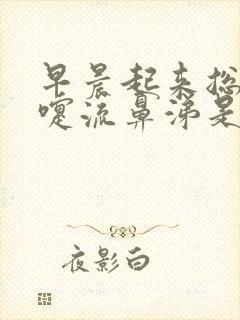 早晨起来总
嚏流鼻涕是
夜影白